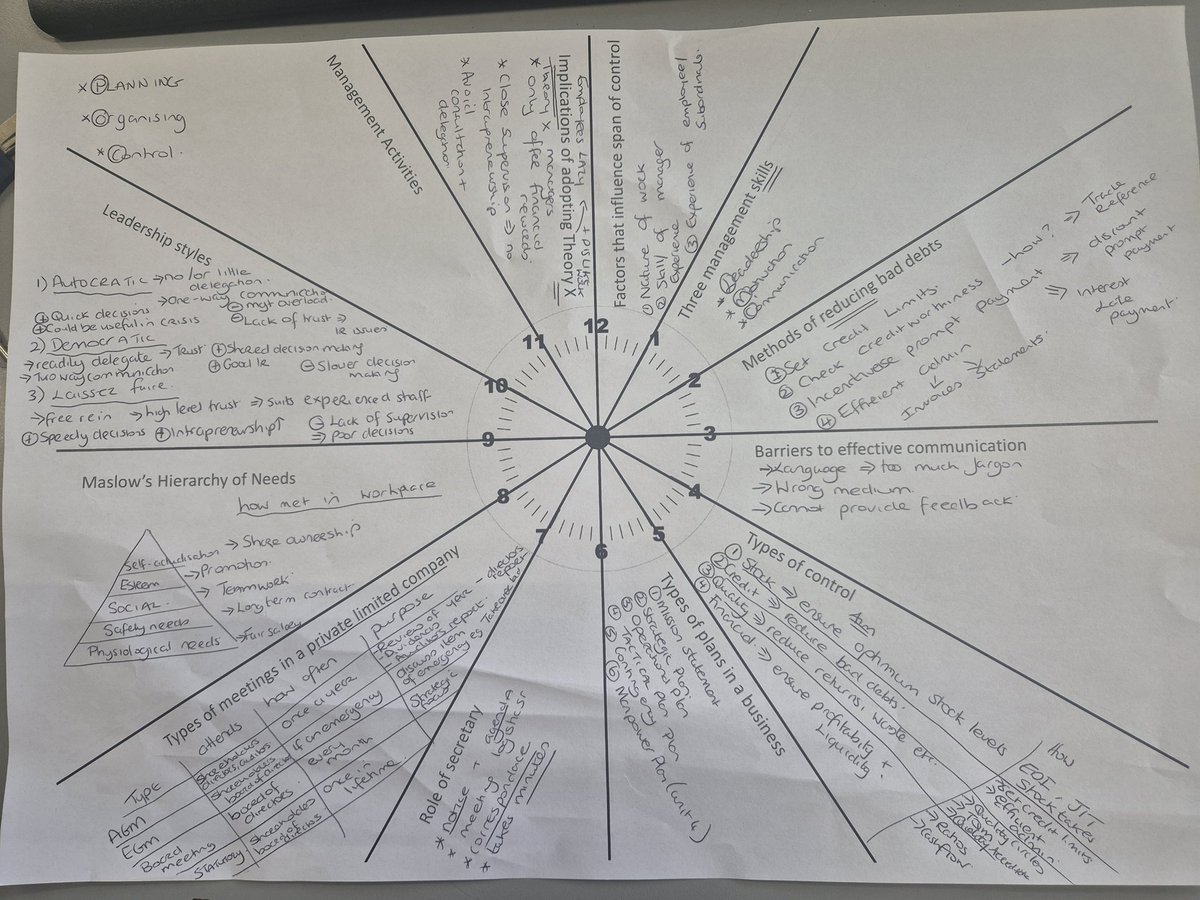 * PLANNING
* Organising
* Control.
Management Activities
Implications of adopting Theory X
Employees LAZY + DISLIKE
Theory X managers
* only offer financial rewards.
* Close supervision ⇒ no
Intrapreneurship
* Avoid
consultation +
delegation
Factors that influence span of control
① Nature of work
② Skill of manager
Experience
③ Experience of employee/
Subordinate.
Three management skills
* Leadership
* Motivation
* Communication
Methods of reducing bad debts
① Set Credit Limits.
② Check creditworthiness
③ Incentivise prompt payment
④ Efficient admin
Invoices Statements.
-how? ⇒ Trade
Reference
⇒ discount
prompt
payment
⇒ Interest
Late
payment.
Barriers to effective communication
→ Language ⇒ too much Jargon
→ Wrong medium.
→ Cannot provide feedback.
Types of control
Aim
① Stock ⇒ ensure optimum stock levels
② Credit ⇒ reduce bad debts.
③ Quality ⇒ reduce returns, waste etc.
④ Financial ⇒ ensure profitability +
Liquidity.
How
EOI, JIT
Stock takes
→ set credit limits
→ efficient
admin.
→ Quality circles
→ Ratios
→ Cashflow
Types of plans in a business
① Mission statement
② Strategic plan
③ Operational plan
④ TACTICAL plan
⑤ Contingency Plan
⑥ Manpower Plan (unit 4)
Role of secretary
* notice + agenda
* meeting logistics
* correspondence
* takes minutes
Types of meetings in a private limited company
TYPE attends how often purpose
AGM Shareholders directors, auditors once a year Review of year - directors report
- Dividends
- Auditors report.
EGM Shareholders board of directors if an emergency discuss item of emergency eg Takeover bid
Board meeting board of directors. every month Strategic
STATUTORY Shareholders board of directors once in lifetime
Maslow's Hierarchy of Needs
how met in workplace
Self-actualisation → Share ownership
Esteem → Promotion.
SOCIAL. → Teamwork.
Safety needs → Long term contract
Physiological needs → Fair salary
Leadership styles
1) AUTOCRATIC → no/or little
delegation.
→ One-way communication
⊕ Quick decisions ⊖ mgt overload.
⊕ Could be useful in crisis ⊖ Lack of trust ⇒
IR issues
2) DEMOCRATIC
→ readily delegate → Trust ⊕ Shared decision making
→ Two way communication ⊕ Good IR ⊖ Slower decision
making
3) LAISSEZ faire.
→ free rein → high level trust → suits experienced staff
⊕ Speedy decisions ⊕ Intrapreneurship↑ ⊖ Lack of supervision
⇒ poor decisions
12
1
2
3
4
5
6
7
8
9
10
11